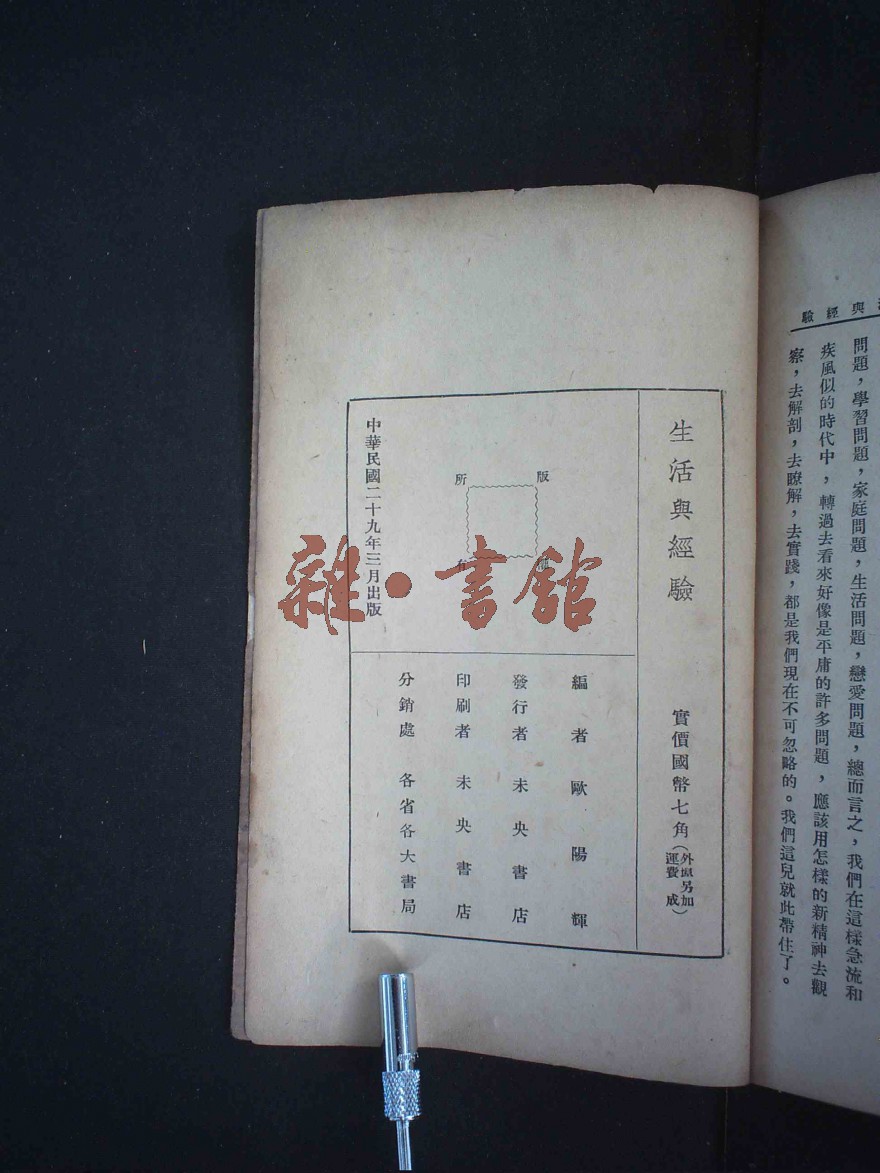 與經驗
問題，學習問題，家庭問題，生活問題，戀愛問題，總而言之，我們在這樣急流和
疾風似的時代中，轉過去看來好像是平庸的許多問題，應該用怎樣的新精神去觀
察，去解剖，去瞭解，去實踐，都是我們現在不可忽略的。我們這兒就此帶住了。
生活與經驗
實價國幣七角（外埠另加運費 成）
版
所
中華民國二十九年三月出版
編者 歐陽輝
發行者 未央書店
印刷者 未央書店
分銷處 各省各大書局
雜·書館